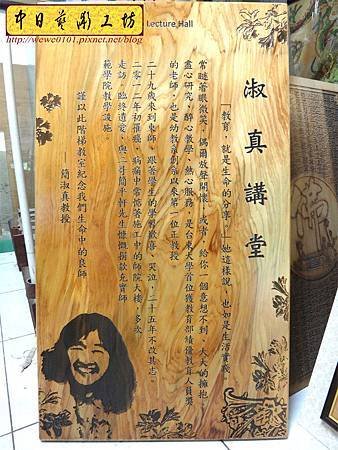 中日藝彫工坊
http://wewe0101.pixnet.net/blog
Lecture Hall
淑真講堂
「教育，就是生命的分享。」她這樣說，也如是生活實踐。
常瞇著眼微笑，偶爾放聲開懷，或者，給你一個意想不到、大大的擁抱。
盡心研究，醉心教學、熱心服務，是台東大學首位獲教育部績優教育人員獎
的老師，也是幼教系創系以來第一位正教授。
二十九歲來到東師，跟著學生的學習歡喜、哭泣，二十五年不改其志。
二零一二年初罹癌，病痛中常惦著施工中的師院大樓，多次
走訪，臨終遺愛，與二哥簡千軒先生慷慨捐款充實師
範學院教學設施。
謹以此階梯教室紀念我們生命中的良師
簡淑真教授